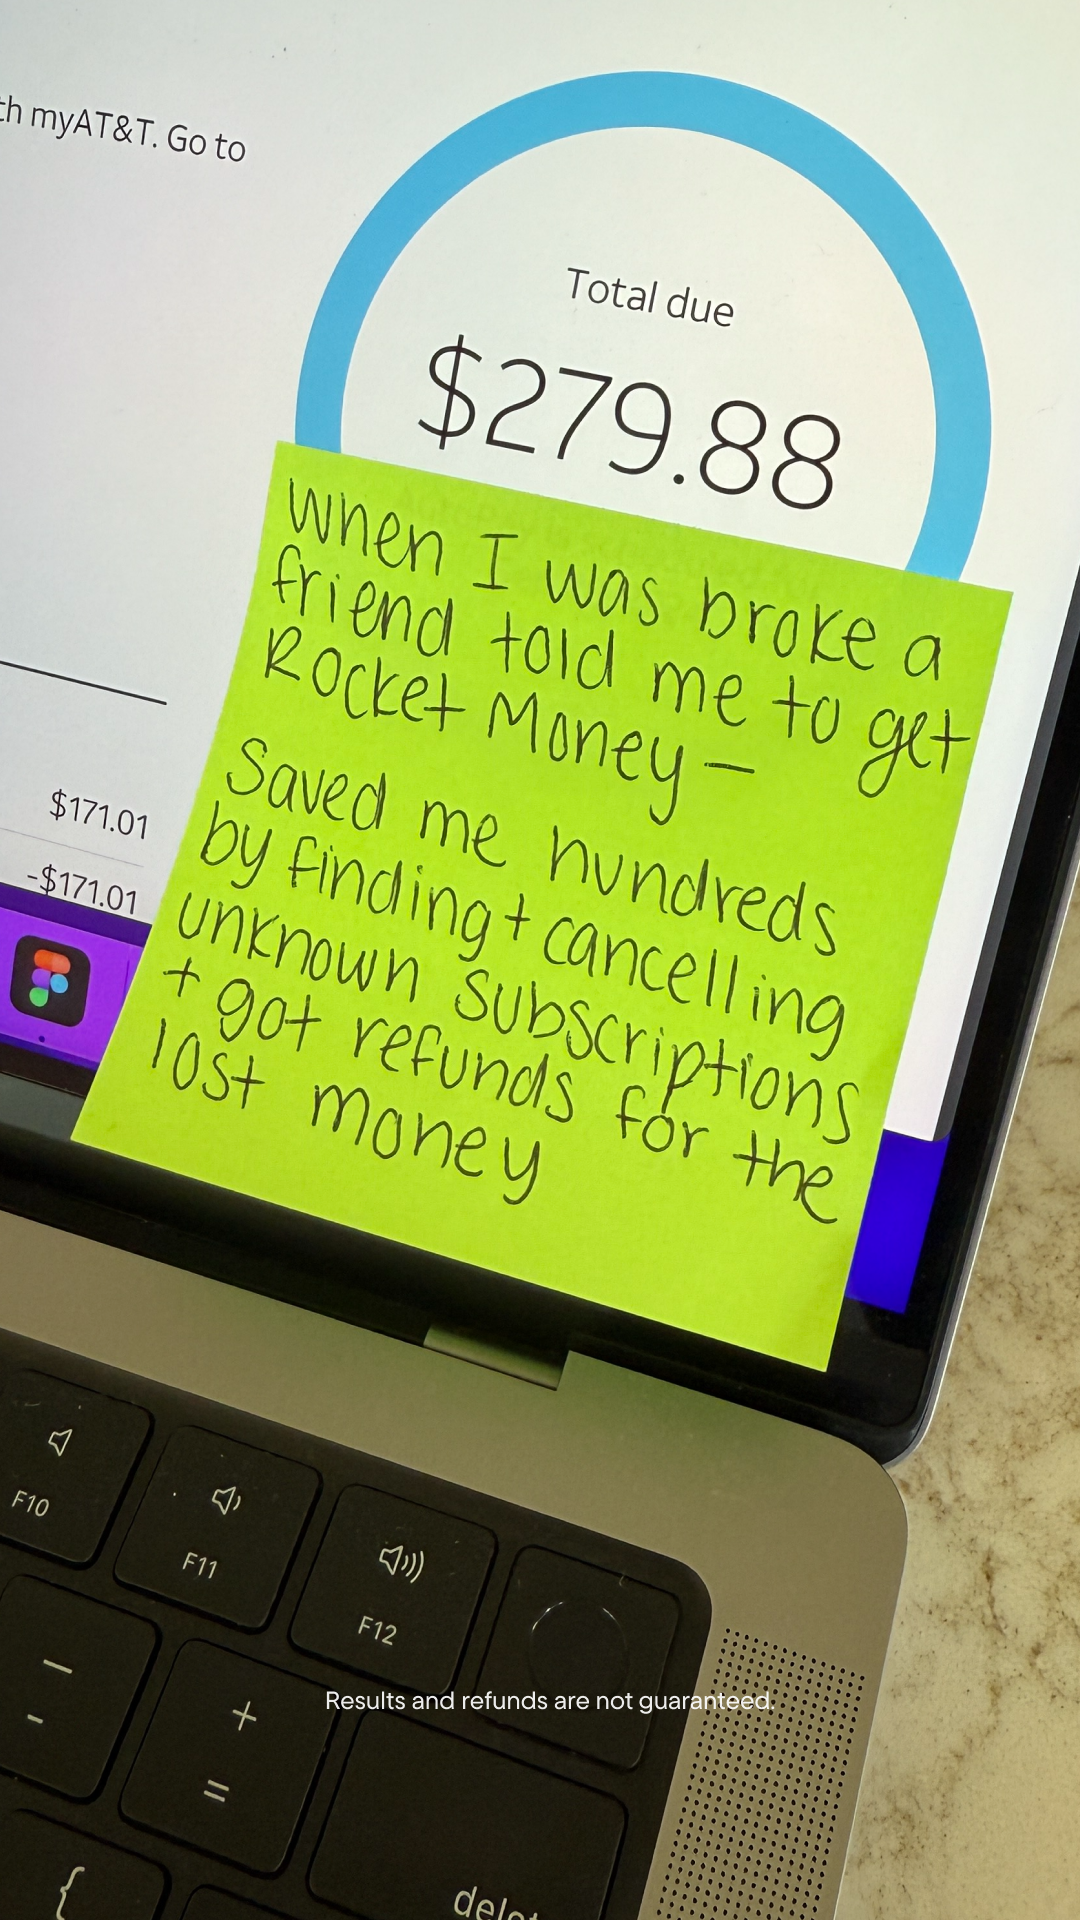 th myAT&T. Go to
Total due
$279.88
When I was broke a
friend told me to get
Rocket Money—
Saved me hundreds
by finding + cancelling
unknown subscriptions
+ got refunds for the
lost money
$171.01
-$171.01
F10
F11
F12
Results and refunds are not guaranteed.
—
-
+
=
{
delet